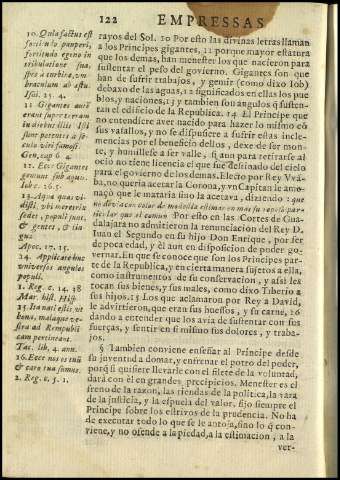 122 EMPRESSAS
10. Quia factus est
fortitudo pauperi,
fortitudo egeno in
tribulatione sua
spes à turbine, vm-
braculum ab æstu
Isai. 25. 4.
11 Gigantes autē
erant super terram
in diebus illis Isti
sunt potentes à sæ-
culo viri famosi.
Gen, cap 6 4.
12. Ecce Gigantes
gemunt sub aquis.
Iob c. 26. 5.
13. Aquæ quas vi-
disti, vbi meretrix
sedet, populi sunt,
& gentes, & lin
guæ
Apoc. 17. 15.
24. Applicate huc
vniversos angulos
populi.
1. Reg. c. 14. 38
Mar. hist. Hisp
15 Ita nati estis, vt
bona, malaque ve-
stra ad Rempubli
cam pertineant.
Tac. lib. 4. ann.
16. Ecce nos os tuū
& caro tua sumus.
2. Reg. c. 5. 1.
rayos del Sol. 10 Por esto las divinas letras llaman
a los Principes gigantes, 11 porque mayor estatura
que los demas, han menester los que nacieron para
sustentar el peso del govierno. Gigantes son que
han de sufrir trabajos, y gemir (como dixo Iob)
debaxo de las aguas, 12 significados en ellas los pue
blos, y naciones, 13 y tambien son angulos q̄ susten-
tan el edificio de la Republica. 14 El Principe que
no entendiere aver nacido para hazer lo mismo cō
sus vasallos, y no se dispusiere a sufrir estas incle-
mencias por el beneficio dellos, dexe de ser mon-
te, y humillese a ser valle, si aun para retirarse al
ocio no tiene licencia el que fue destinado del cielo
para el govierno de los demas. Electo por Rey Vvā-
ba, no queria acetar la Corona, y vn Capitan le ame
naçò que le mataria sino la acetava, diziendo: que
no devia con color de modestia estimar en mas su reposo par-
ticular que el comun Por esto en las Cortes de Gua-
dalajara no admitieron la renunciacion del Rey D.
Iuan el Segundo en su hijo Don Enrique, por ser
de poca edad, y èl aun en disposicion de poder go-
vernar. En que se conoce que son los Principes par-
te de la Republica, y en cierta manera sujetos a ella,
como instrumentos de su conservacion, y assi les
tocan sus bienes, y sus males, como dixo Tiberio a
sus hijos. 15 Los que aclamaron por Rey a David,
le advirtieron, que eran sus huessos, y su carne, 16
dando a entender que los avia de sustentar con sus
fuerças, y sentir en si mismo sus dolores, y traba-
jos.
§ Tambien conviene enseñar al Principe desde
su juventud a domar, y enfrenar el potro del poder,
porq̄ si quisiere llevarle con el filete de la voluntad,
darà con èl en grandes precipicios. Menester es el
freno de la razon, las riendas de la politica, la vara
de la justicia, y la espuela del valor, fijo siempre el
Principe sobre los estrivos de la prudencia. No ha
de executar todo lo que se le antoja, sino lo q̄ con-
viene, y no ofende a la piedad, a la estimacion, a la
ver-